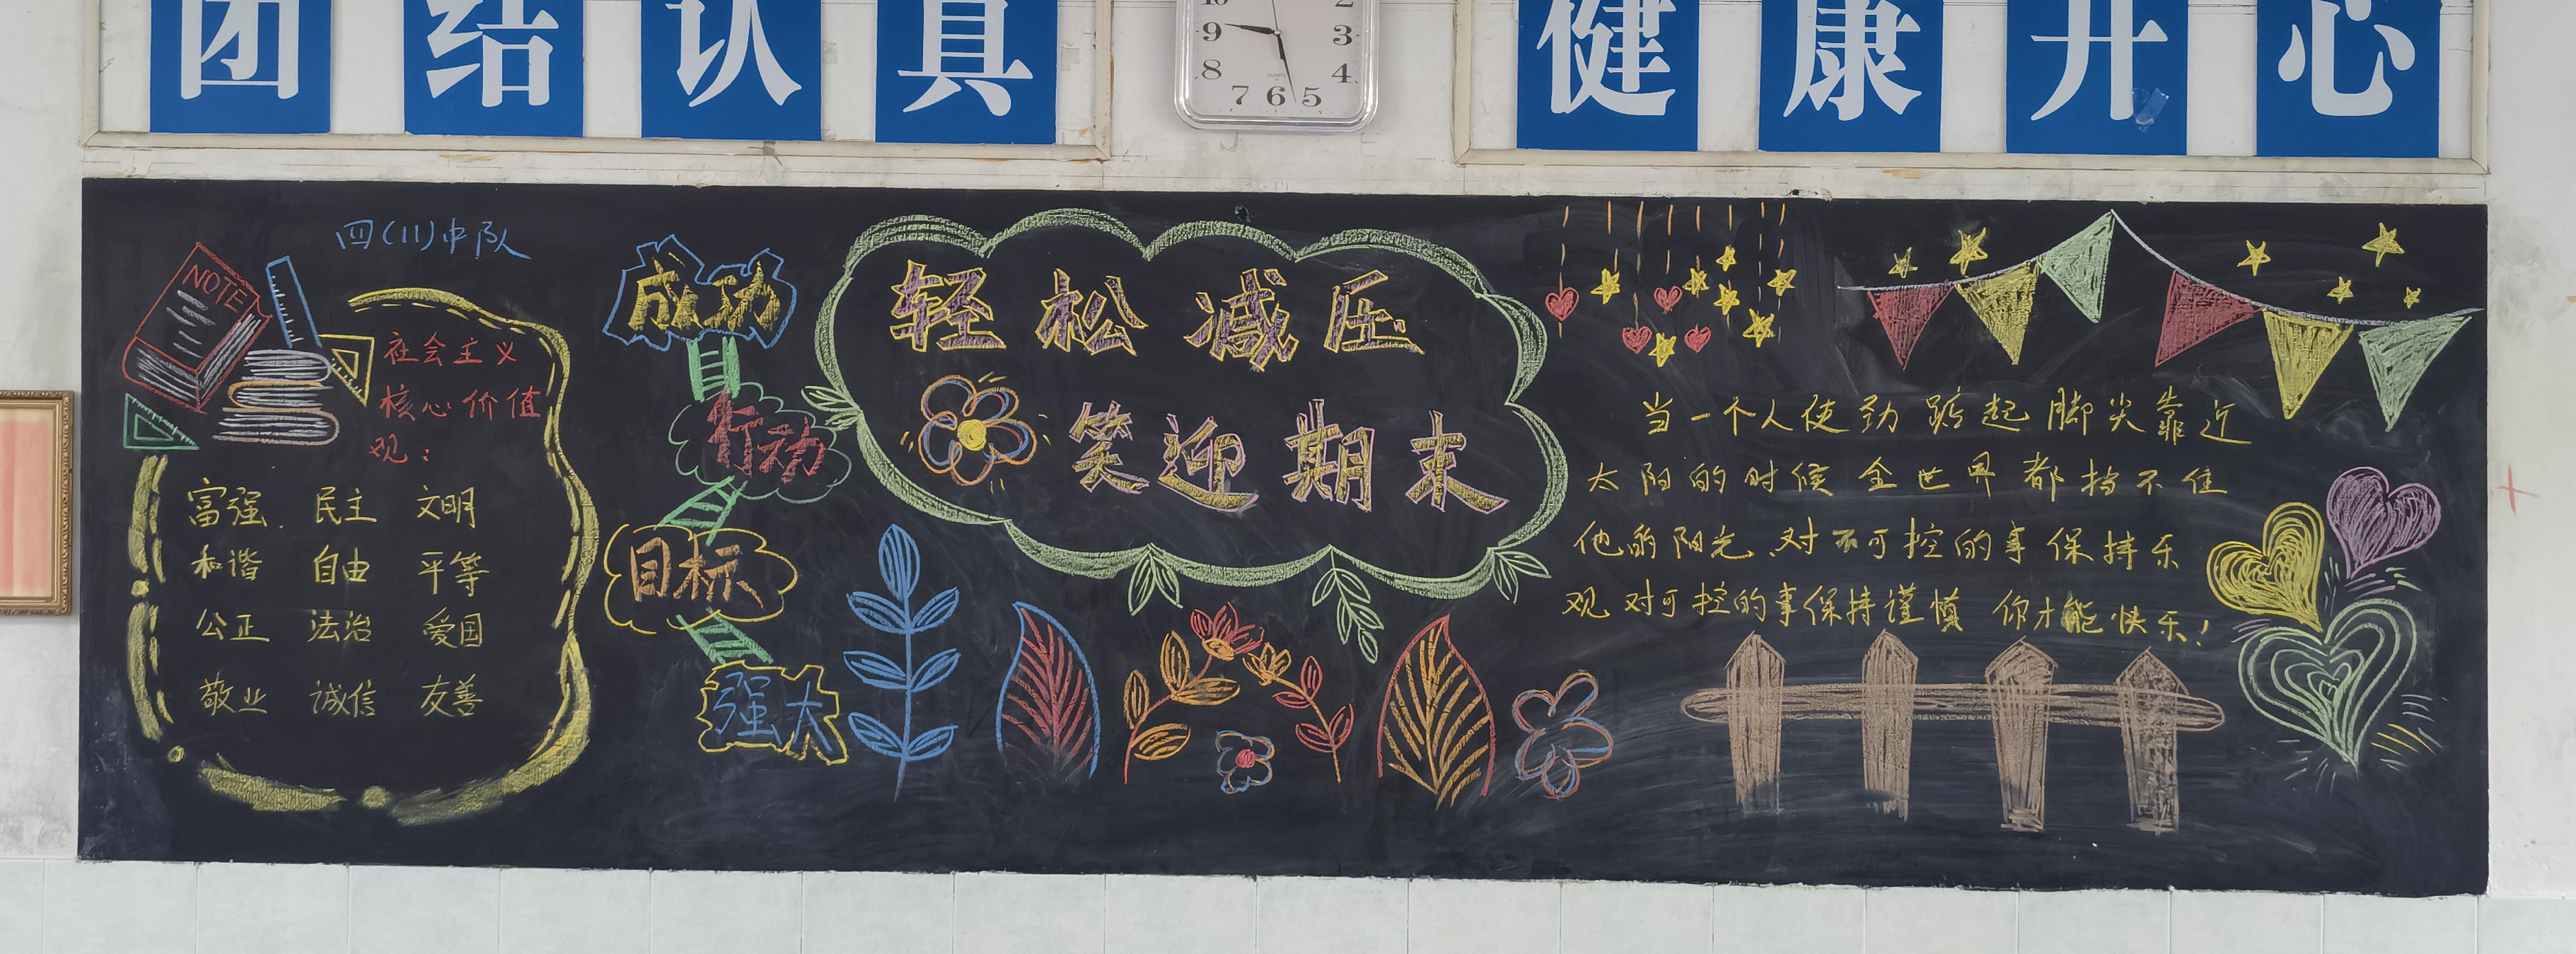 团结认真
健康开心
10
9
8
7
6
5
4
3
2
四(11)中队
NOTE
社会主义
核心价值
观：
富强 民主 文明
和谐 自由 平等
公正 法治 爱国
敬业 诚信 友善
成功
行动
目标
强大
轻松减压
笑迎期末
当一个人使劲踮起脚尖靠近
太阳的时候全世界都挡不住
他的阳光 对不可控的事保持乐
观 对可控的事保持谨慎 你才能快乐！